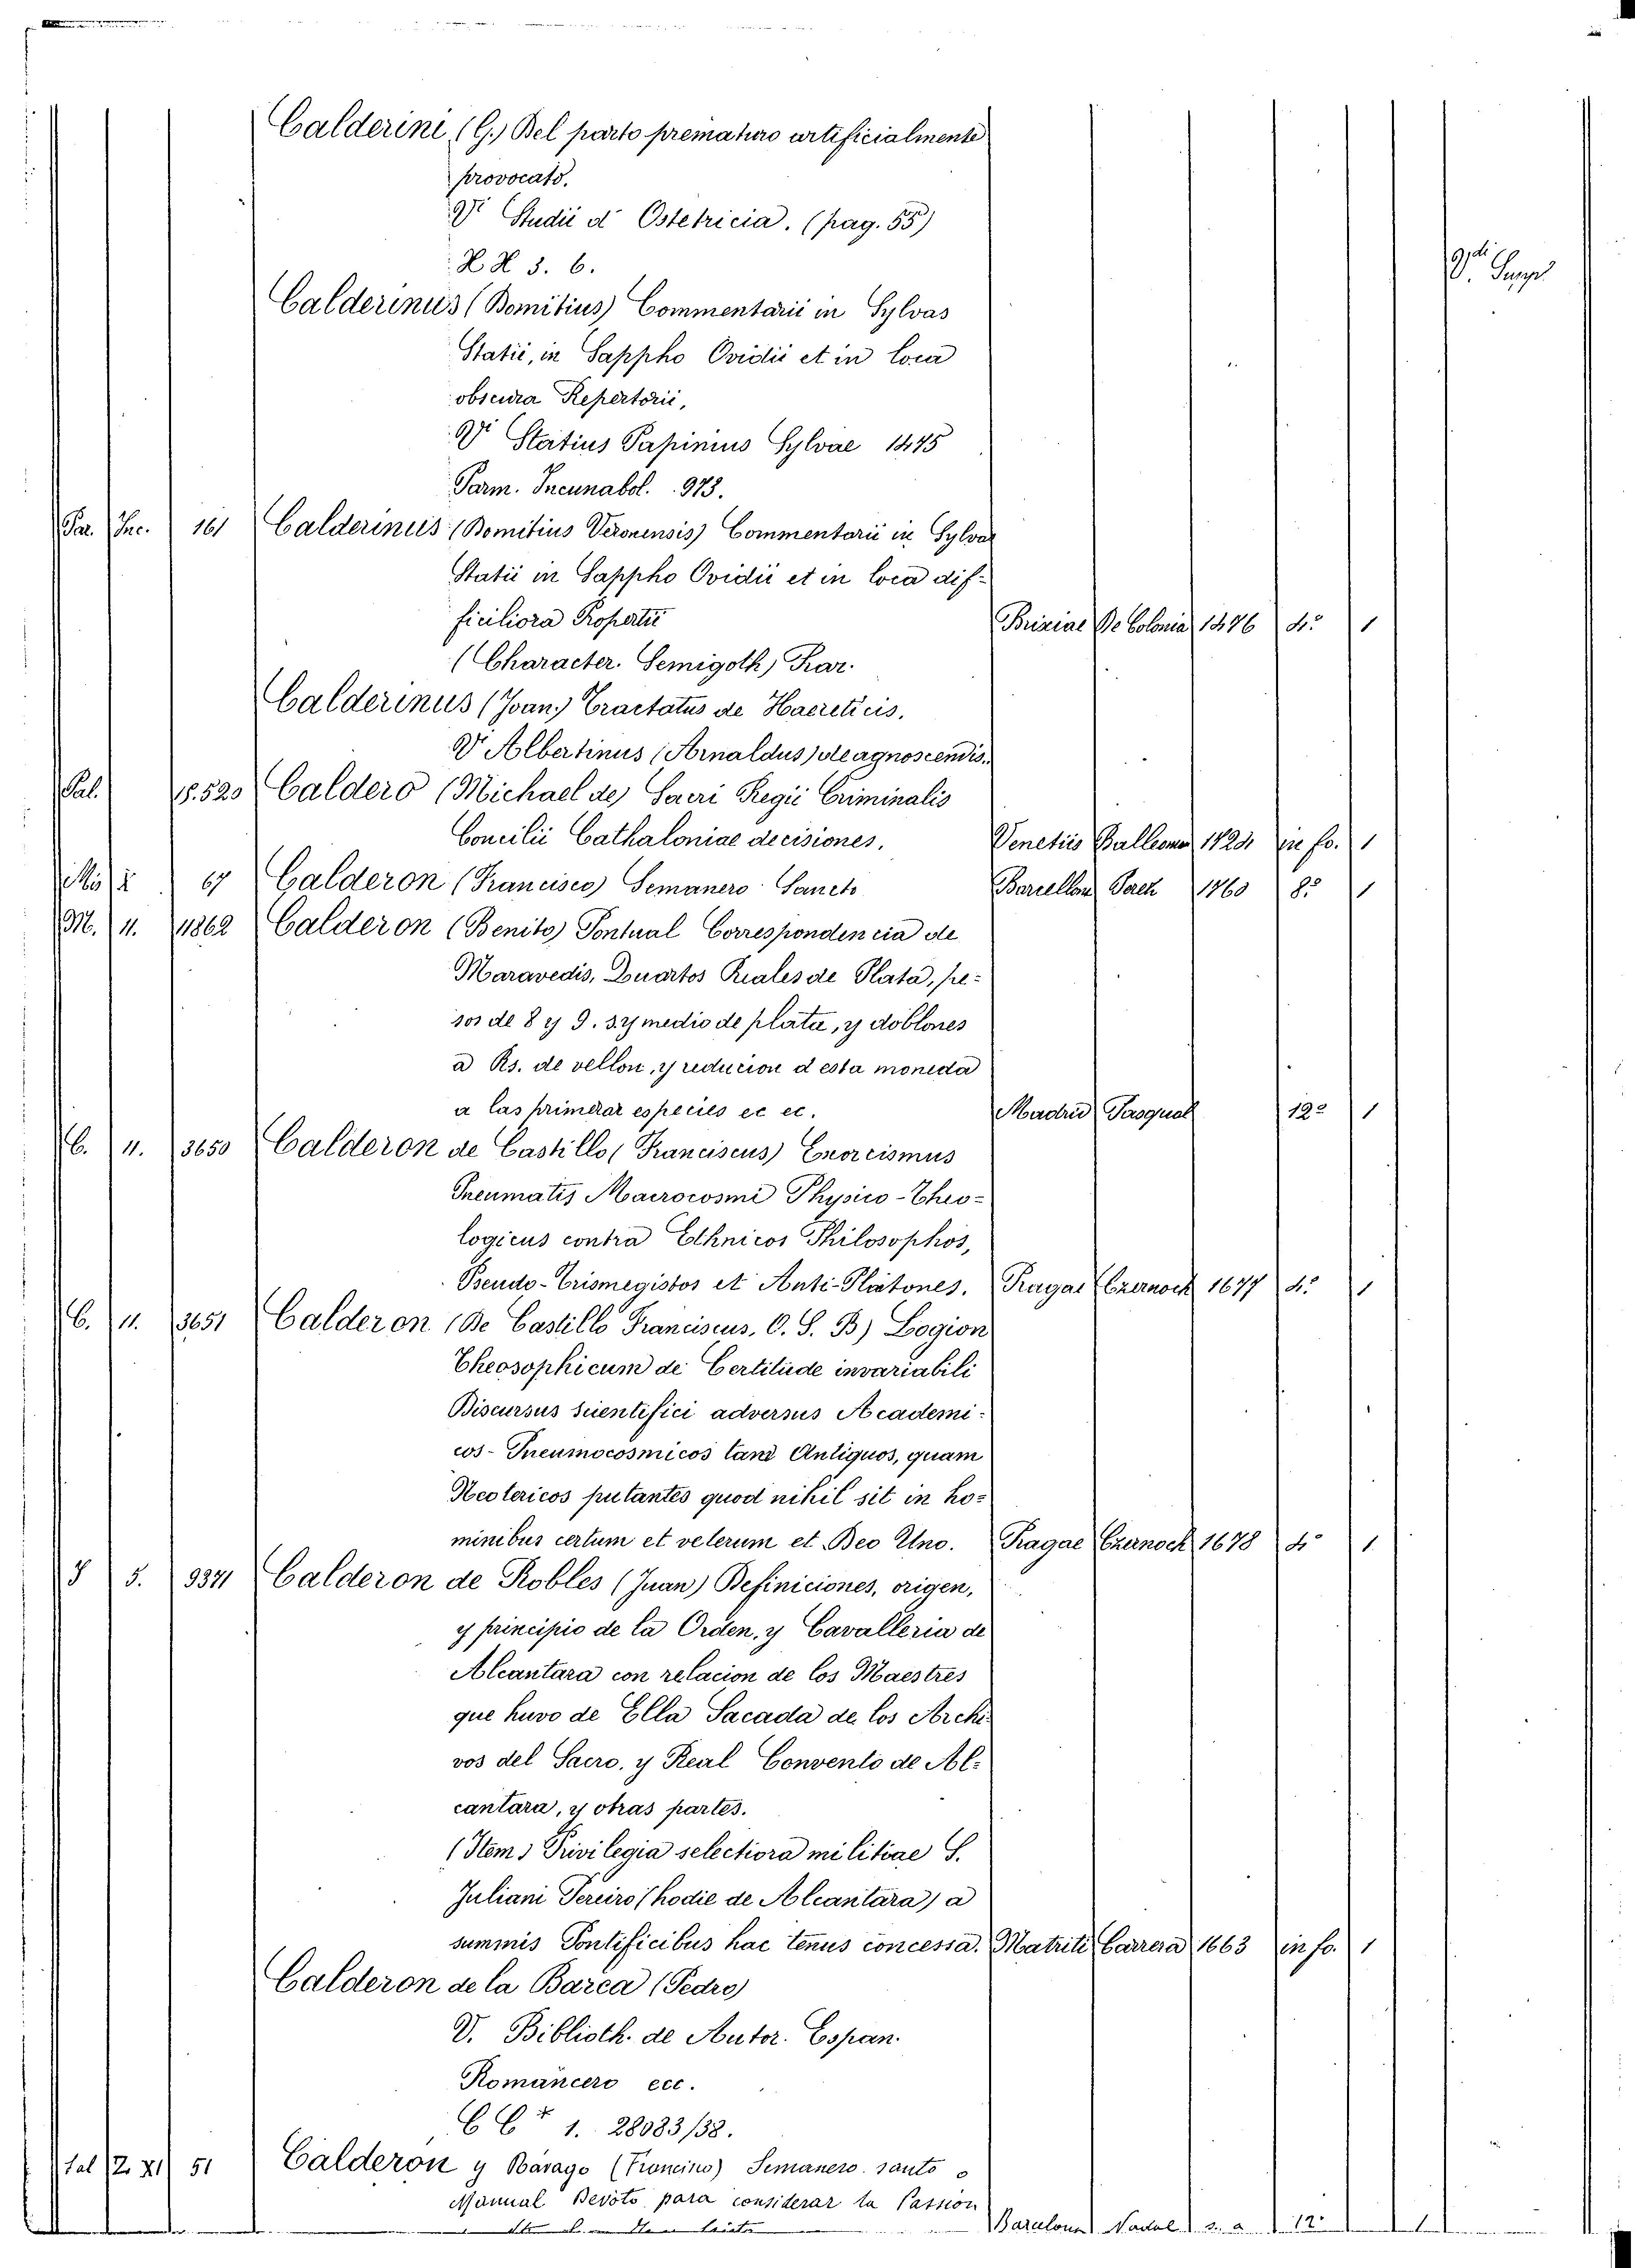 Calderini (G.) Del parto prematuro artificialmente
provocato.
Vi Studii d' Ostetricia. (pag. 55)
H H 3. 6.
Calderinus (Domitius) Commentarii in Sylvas
Statii, in Sappho Ovidii et in loca
obscura Repertorii,
Vi Statius Papinius Sylvae 1475
Parm. Incunabol. 973.
Par. Inc. 161 Calderinus (Domitius Veronensis) Commentarii in Sylvas
Statii in Sappho Ovidii et in loca dif-
ficiliora Propertii Brixiae De Colonia 1476 4.º 1
(Character. Semigoth) Rar.
Calderinus (Joan.) Tractatus de Haereticis.
Vi Albertinus (Arnaldus) de agnoscendis.
Pal. 18.520 Caldero (Michael de) Sacri Regii Criminalis
Concilii Cathaloniae decisiones. Venetiis Balleona 1724 in fo. 1
67 Calderon (Francisco) Semanero Sancto Barcellona 1760 8.º 1
M. 11. 11862 Calderon (Benito) Pontual Correspondencia de
Maravedis, Quartos Reales de Plata, pe-
sos de 8 y 9. s. y medio de plata, y doblones
a Rs. de vellon, y reducion d esta moneda
a las primeras especies ec ec. Madrid Pasqual 12º 1
C. 11. 3650 Calderon de Castillo (Franciscus) Exorcismus
Pneumatis Macrocosmi Physico-Theo-
logicus contra Ethnicos Philosophos,
Pseudo-Trismegistos et Anti-Platones. Pragae Czernoch 1677 4.º 1
C. 11. 3651 Calderon (De Castillo Franciscus. O. S. B.) Logion
Theosophicum de Certitude invariabili
Discursus scientifici adversus Academi-
cos-Pneumocosmicos tam Antiquos, quam
Neotericos putantes quod nihil sit in ho-
minibus certum et veterum et Deo Uno. Pragae Czernoch 1678 4º 1
5. 9371 Calderon de Robles (Juan) Definiciones, origen,
y principio de la Orden, y Cavalleria de
Alcantara con relacion de los Maestres
que huvo de Ella Sacada de los Archi-
vos del Sacro, y Real Convento de Al-
cantara, y otras partes.
(Item) Privilegia selectiora militiae S.
Juliani Pereiro (hodie de Alcantara) a
summis Pontificibus hac tenus concessa. Matriti Carrera 1663 in fo. 1
Calderon de la Barca (Pedro)
V. Biblioth. de Autor. Espan.
Romancero ecc.
C C+ 1. 28083/38.
Pal Z. XI 51 Calderon y Barago (Francisco) Semanero santo o
Manual Devoto para considerar la Passion
Barcelona Nadal s. a 12º 1